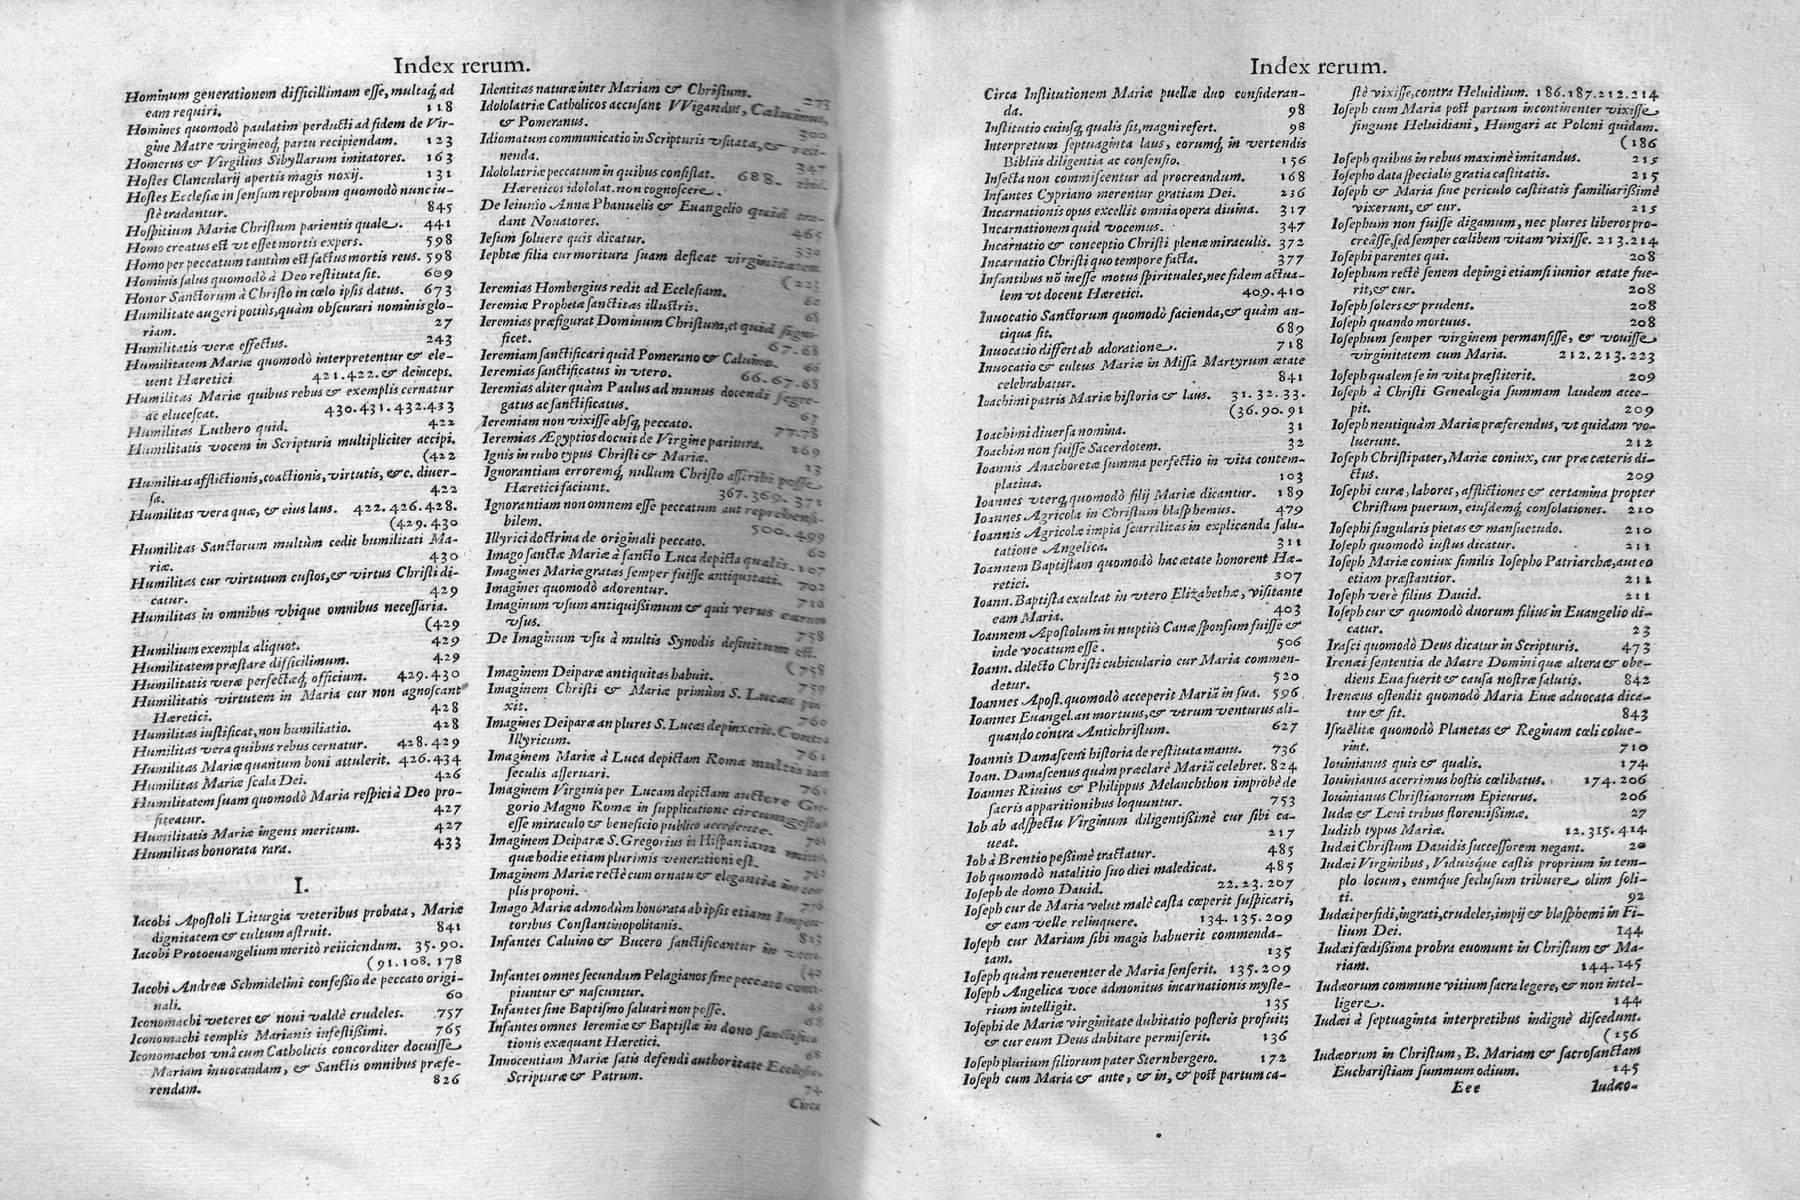 Index rerum.
Hominum generationem difficillimam esse, multaq́, ad
eam requiri. 118
Homines quomodò paulatim perducti ad fidem de Vir-
gine Matre virgineoq́, partu recipiendam. 123
Homerus & Virgilius Sibyllarum imitatores. 163
Hostes Clancularij apertis magis noxij. 131
Hostes Ecclesiæ in sensum reprobum quomodò nunc iu-
stè tradantur. 845
Hospitium Mariæ Christum parientis quale. 441
Homo creatus est vt esset mortis expers. 598
Homo per peccatum tantùm est factus mortis reus. 598
Hominis salus quomodò à Deo restituta sit. 609
Honor Sanctorum à Christo in cœlo ipsis datus. 673
Humilitate augeri potiùs, quàm obscurari nominis glo-
riam. 27
Humilitatis veræ effectus. 243
Humilitatem Mariæ quomodò interpretentur & ele-
uent Hæretici 421.422. & deinceps.
Humilitas Mariæ quibus rebus & exemplis cernatur
ac elucescat. 430.431.432.433
Humilitas Luthero quid. 422
Humilitatis vocem in Scripturis multipliciter accipi.
(422
Humilitas afflictionis, coactionis, virtutis, &c. diuer-
sa. 422
Humilitas vera quæ, & eius laus. 422.426.428.
(429.430
Humilitas Sanctorum multùm cedit humilitati Ma-
riæ. 430
Humilitas cur virtutum custos, & virtus Christi di-
catur. 429
Humilitas in omnibus vbique omnibus necessaria.
(429
Humilium exempla aliquot. 429
Humilitatem præstare difficilimum. 429
Humilitatis veræ perfectæq́, officium. 429.430
Humilitatis virtutem in Maria cur non agnoscant
Hæretici. 428
Humilitas iustificat, non humiliatio. 428
Humilitas vera quibus rebus cernatur. 428.429
Humilitas Mariæ quantum boni attulerit. 426.434
Humilitas Mariæ scala Dei. 426
Humilitatem suam quomodò Maria respici à Deo pro-
fiteatur. 427
Humilitatis Mariæ ingens meritum. 427
Humilitas honorata rara. 433
I.
Iacobi Apostoli Liturgia veteribus probata, Mariæ
dignitatem & cultum astruit. 841
Iacobi Protoeuangelium meritò reiiciendum. 35.90.
(91.108.178
Iacobi Andreæ Schmidelini confessio de peccato origi-
nali. 60
Iconomachi veteres & noui valdè crudeles. 757
Iconomachi templis Marianis infestissimi. 765
Iconomachos vnà cum Catholicis concorditer docuisse
Mariam inuocandam, & Sanctis omnibus præfe-
rendam. 826
Identitas naturæ inter Mariam & Christum. 273
Idololatriæ Catholicos accusant VVigandus, Caluinus,
& Pomeranus. 300
Idiomatum communicatio in Scripturis vsitata, & reti-
nenda. 347
Idololatriæ peccatum in quibus consistat. 688. ibid.
Hæreticos idololat. non cognoscere.
De Ieiunio Annæ Phanuelis & Euangelio quid cre-
dant Nouatores. 465
Iesum soluere quis dicatur. 339
Iephtæ filia cur moritura suam defleat virginitatem.
(223
Ieremias Hombergius redit ad Ecclesiam. 60
Ieremiæ Prophetæ sanctitas illustris. 68
Ieremias præfigurat Dominum Christum, et quid signi-
ficet. 67.68
Ieremiam sanctificari quid Pomerano & Caluino. 66
Ieremias sanctificatus in vtero. 66.67.68
Ieremias aliter quàm Paulus ad munus docendi segre-
gatus ac sanctificatus. 67
Ieremiam non vixisse absq́, peccato. 77.78
Ieremias Ægyptios docuit de Virgine paritura. 169
Ignis in rubo typus Christi & Mariæ. 13
Ignorantiam erroremq́, nullum Christo asscribi posse
Hæretici faciunt. 367.369.371
Ignorantiam non omnem esse peccatum aut reprehensi-
bilem. 500.499
Illyrici doctrina de originali peccato. 60
Imago sanctæ Mariæ à sancto Luca depicta qualis. 107
Imagines Mariæ gratas semper fuisse antiquitati. 702
Imagines quomodò adorentur. 716
Imaginum vsum antiquissimum & quis verus earum
vsus. 758
De Imaginum vsu à multis Synodis definitum est.
(758
Imaginem Deiparæ antiquitas habuit. 759
Imaginem Christi & Mariæ primùm S. Lucas pin-
xit. 760
Imagines Deiparæ an plures S. Lucas depinxerit. Contra
Illyricum. 761
Imaginem Mariæ à Luca depictam Roma multis iam
seculis asseruari.
Imaginem Virginis per Lucam depictam auctore Gre-
gorio Magno Romæ in supplicatione circumgesta
esse miraculo & beneficio publico accedente.
Imaginem Deiparæ S. Gregorius in Hispaniam misit,
quæ hodie etiam plurimis venerationi est.
Imaginem Mariæ rectè cum ornatu & elegantia in tem-
plis proponi.
Imago Mariæ admodùm honorata ab ipsis etiam Impera-
toribus Constantinopolitanis. 813
Infantes Caluino & Bucero sanctificantur in vtero.
(40
Infantes omnes secundum Pelagianos sine peccato conci-
piuntur & nascuntur. 48
Infantes sine Baptismo saluari non posse. 68
Infantes omnes Ieremiæ & Baptistæ in dono sanctifica-
tionis exæquant Hæretici. 68
Innocentiam Mariæ satis defendi authoritate Ecclesiæ,
Scripturæ & Patrum. 74
Circa
Index rerum.
Circa Institutionem Mariæ puellæ duo consideran-
da. 98
Institutio cuiusq́, qualis sit, magni refert. 98
Interpretum septuaginta laus, eorumq́, in vertendis
Bibliis diligentia ac consensio. 156
Insecta non commiscentur ad procreandum. 168
Infantes Cypriano merentur gratiam Dei. 236
Incarnationis opus excellit omnia opera diuina. 317
Incarnationem quid vocemus. 347
Incarnatio & conceptio Christi plenæ miraculis. 372
Incarnatio Christi quo tempore facta. 377
Infantibus nõ inesse motus spirituales, nec fidem actua-
lem vt docent Hæretici. 409.410
Inuocatio Sanctorum quomodò facienda, & quàm an-
tiqua sit. 689
Inuocatio differt ab adoratione. 718
Inuocatio & cultus Mariæ in Missa Martyrum ætate
celebrabatur. 841
Ioachimi patris Mariæ historia & laus. 31.32.33.
(36.90.91
Ioachimi diuersa nomina. 31
Ioachim non fuisse Sacerdotem. 32
Ioannis Anachoretæ summa perfectio in vita contem-
platiua. 103
Ioannes vterq́, quomodò filij Mariæ dicantur. 189
Ioannes Agricola in Christum blasphemus. 479
Ioannis Agricolæ impia scurrilitas in explicanda salu-
tatione Angelica. 311
Ioannem Baptistam quomodò hac ætate honorent Hæ-
retici. 307
Ioann. Baptista exultat in vtero Elizabethæ, visitante
eam Maria. 403
Ioannem Apostolum in nuptiis Canæ sponsum fuisse &
inde vocatum esse. 506
Ioann. dilecto Christi cubiculario cur Maria commen-
detur. 520
Ioannes Apost. quomodò acceperit Mariã in sua. 596
Ioannes Euangel. an mortuus, & vtrum venturus ali-
quando contra Antichristum. 627
Ioannis Damasceni historia de restituta manu. 736
Ioan. Damascenus quàm præclarè Mariã celebret. 824
Ioannes Riuius & Philippus Melanchthon improbè de
sacris apparitionibus loquuntur. 753
Iob ab adspectu Virginum diligentissimè cur sibi ca-
ueat. 217
Iob à Brentio pessimè tractatur. 485
Iob quomodò natalitio suo diei maledicat. 485
Ioseph de domo Dauid. 22.23.207
Ioseph cur de Maria velut malè casta cœperit suspicari,
& eam velle relinquere. 134.135.209
Ioseph cur Mariam sibi magis habuerit commenda-
tam. 135
Ioseph quàm reuerenter de Maria senserit. 135.209
Ioseph Angelica voce admonitus incarnationis myste-
rium intelligit. 135
Iosephi de Mariæ virginitate dubitatio posteris profuit;
& cur eum Deus dubitare permiserit. 136
Ioseph plurium filiorum pater Sternbergero. 172
Ioseph cum Maria & ante, & in, & post partum ca-
stè vixisse, contra Heluidium. 186.187.212.214
Ioseph cum Maria post partum incontinenter vixisse
fingunt Heluidiani, Hungari ac Poloni quidam.
(186
Ioseph quibus in rebus maximè imitandus. 215
Iosepho data specialis gratia castitatis. 215
Ioseph & Maria sine periculo castitatis familiarissimè
vixerunt, & cur. 215
Iosephum non fuisse digamum, nec plures liberos pro-
creâsse, sed semper cœlibem vitam vixisse. 213.214
Iosephi parentes qui. 208
Iosephum rectè senem depingi etiamsi iunior ætate fue-
rit, & cur. 208
Ioseph solers & prudens. 208
Ioseph quando mortuus. 208
Iosephum semper virginem permansisse, & vouisse
virginitatem cum Maria. 212.213.223
Ioseph qualem se in vita præstiterit. 209
Ioseph à Christi Genealogia summam laudem acce-
pit. 209
Ioseph neutiquàm Mariæ præferendus, vt quidam vo-
luerunt. 212
Ioseph Christi pater, Mariæ coniux, cur præ cæteris di-
ctus. 209
Iosephi curæ, labores, afflictiones & certamina propter
Christum puerum, eiusdemq́, consolationes. 210
Iosephi singularis pietas & mansuetudo. 210
Ioseph quomodò iustus dicatur. 211
Ioseph Mariæ coniux similis Iosepho Patriarchæ, aut eo
etiam præstantior. 211
Ioseph verè filius Dauid. 211
Ioseph cur & quomodò duorum filius in Euangelio di-
catur. 23
Irasci quomodò Deus dicatur in Scripturis. 473
Irenæi sententia de Matre Domini quæ altera & obe-
diens Eua fuerit & causa nostræ salutis. 842
Irenæus ostendit quomodò Maria Euæ aduocata dica-
tur & sit. 843
Israëlitæ quomodò Planetas & Reginam cœli colue-
rint. 710
Iouinianus quis & qualis. 174
Iouinianus acerrimus hostis cœlibatus. 174.206
Iouinianus Christianorum Epicurus. 206
Iudæ & Leui tribus florentissimæ. 27
Iudith typus Mariæ. 12.315.414
Iudæi Christum Dauidis successorem negant. 20
Iudæi Virginibus, Viduisq́ue castis proprium in tem-
plo locum, eumq́ue seclusum tribuere olim soli-
ti. 92
Iudæi perfidi, ingrati, crudeles, impij & blasphemi in Fi-
lium Dei. 144
Iudæi fœdissima probra euomunt in Christum & Ma-
riam. 144.145
Iudæorum commune vitium sacra legere, & non intel-
ligere. 144
Iudæi à septuaginta interpretibus indignè discedunt.
(156
Iudæorum in Christum, B. Mariam & sacrosanctam
Eucharistiam summum odium. 145
Eee Iudæo-